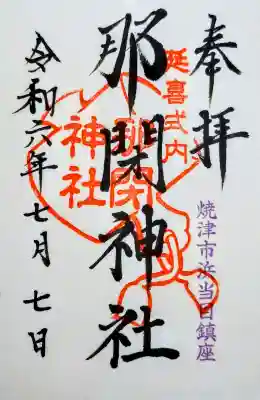 奉拝
延喜式内
焼津市浜当目鎮座
那閇神社
那閇神社
令和六年七月七日